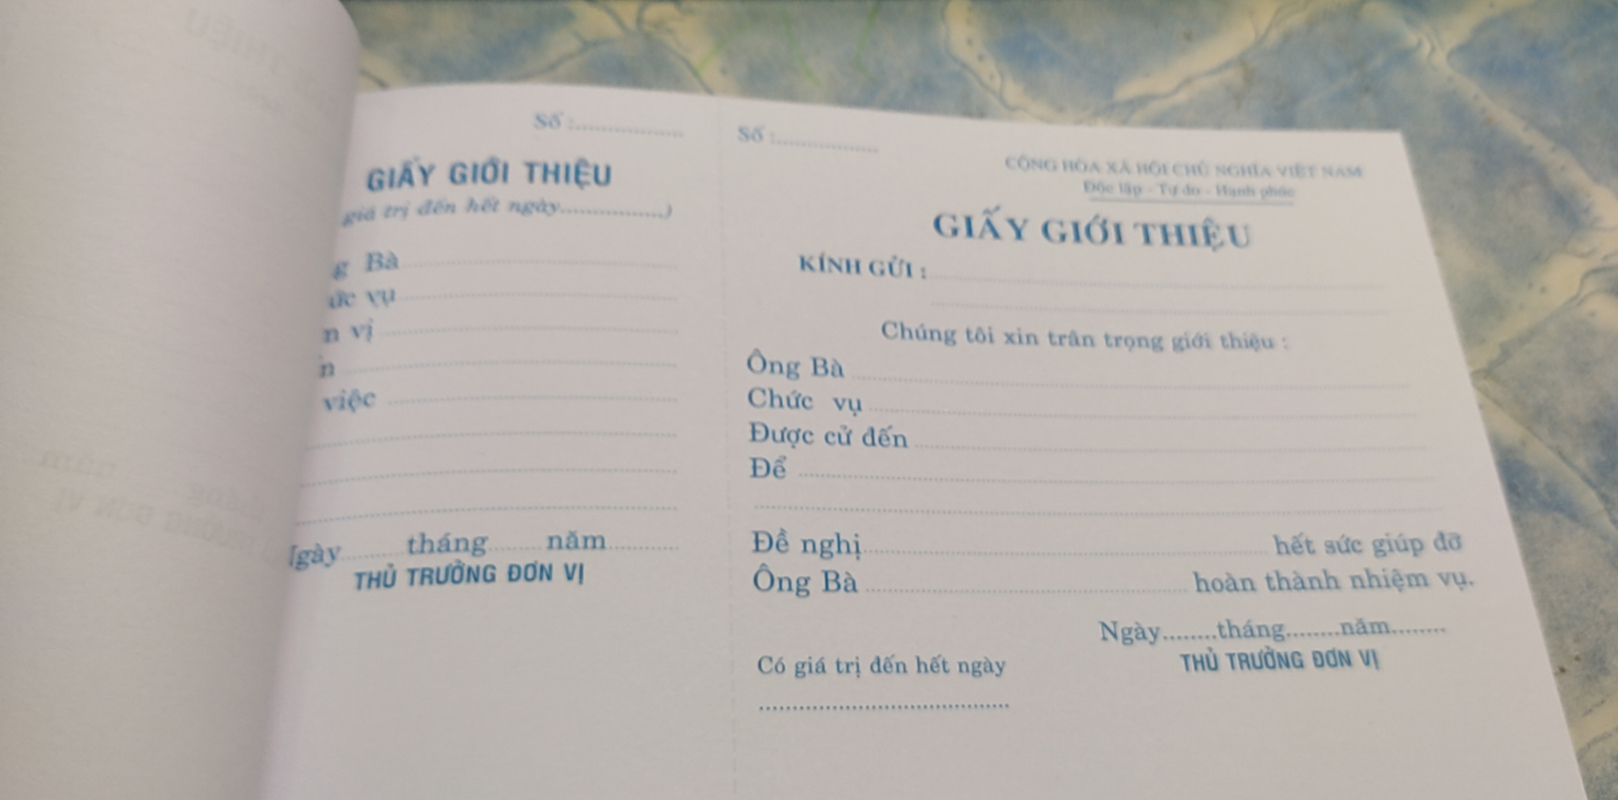 Số :
GIẤY GIỚI THIỆU
giá trị đến hết ngày................)
Bà
vụ
vị
việc
tháng........ năm
THỦ TRƯỞNG ĐƠN VỊ
Số :
CỘNG HÒA XÃ HỘI CHỦ NGHĨA VIỆT NAM
Độc lập - Tự do - Hạnh phúc
GIẤY GIỚI THIỆU
KÍNH GỬI :
Chúng tôi xin trân trọng giới thiệu :
Ông Bà
Chức vụ
Được cử đến
Để
Đề nghị hết sức giúp đỡ
Ông Bà hoàn thành nhiệm vụ.
Ngày........tháng........năm........
THỦ TRƯỞNG ĐƠN VỊ
Có giá trị đến hết ngày